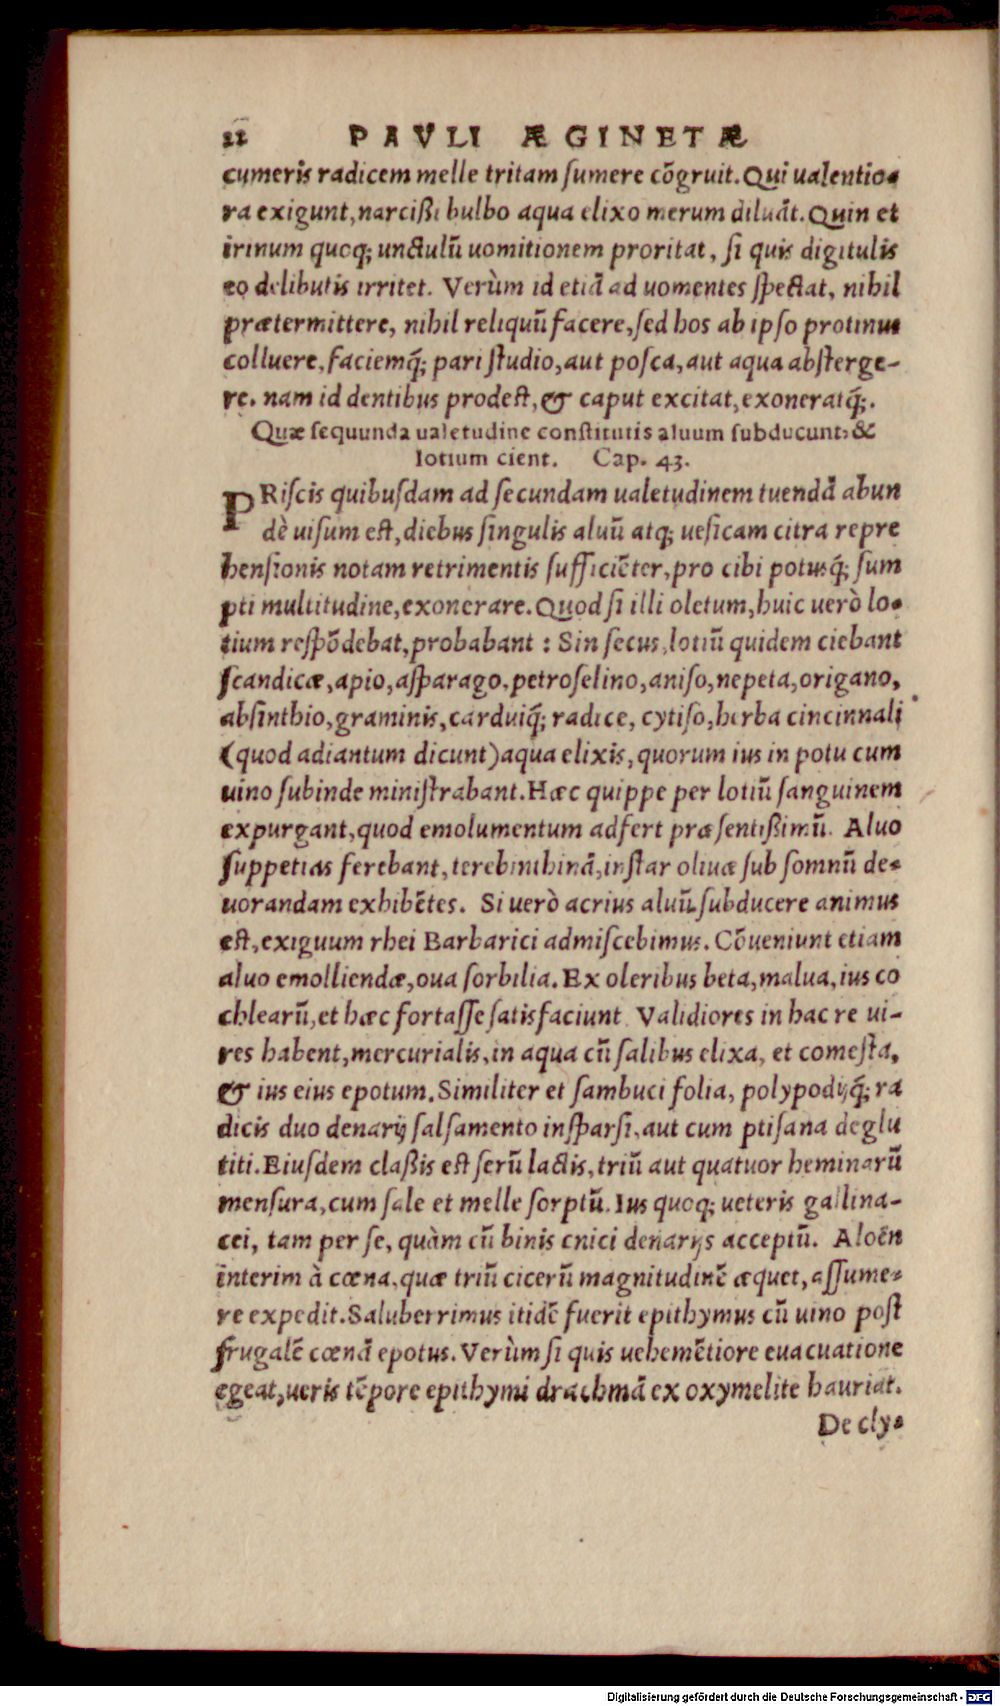 22 PAVLI ÆGINETÆ
cumeris radicem melle tritam sumere cõgruit. Qui ualentio-
ra exigunt, narcißi bulbo aqua elixo merum diluãt. Quin et
irinum quoq; unctulũ uomitionem proritat, si quis digitulis
eo delibutis irritet. Verùm id etiã ad uomentes spectat, nihil
prætermittere, nihil reliquũ facere, sed hos ab ipso protinus
colluere, faciemq́; pari studio, aut posca, aut aqua absterge-
re. nam id dentibus prodest, & caput excitat, exoneratq́;.
Quæ sequunda ualetudine constitutis aluum subducunt, &
lotium cient. Cap. 43.
PRiscis quibusdam ad secundam ualetudinem tuendã abun
dè uisum est, diebus singulis aluũ atq; uesicam citra repre
hensionis notam retrimentis sufficiẽter, pro cibi potusq́; sum
pti multitudine, exonerare. Quod si illi oletum, huic uerò lo-
tium respõdebat, probabant : Sin secus, lotiũ quidem ciebant
scandicæ, apio, asparago, petroselino, aniso, nepeta, origano,
absinthio, graminis, carduiq́; radice, cytiso, herba cincinnali
(quod adiantum dicunt) aqua elixis, quorum ius in potu cum
uino subinde ministrabant. Hæc quippe per lotiũ sanguinem
expurgant, quod emolumentum adfert præsentißimũ. Aluo
suppetias ferebant, terebinthinã, instar oliuæ sub somnũ de-
uorandam exhibẽtes. Si uerò acrius aluũ subducere animus
est, exiguum rhei Barbarici admiscebimus. Cõueniunt etiam
aluo emolliendæ, oua sorbilia. Ex oleribus beta, malua, ius co
chlearũ, et hæc fortasse satisfaciunt. Validiores in hac re ui-
res habent, mercurialis, in aqua cũ salibus elixa, et comesta,
& ius eius epotum. Similiter et sambuci folia, polypodijq́; ra
dicis duo denarij salsamento insparsi, aut cum ptisana deglu
titi. Eiusdem claßis est serũ lactis, triũ aut quatuor heminarũ
mensura, cum sale et melle sorptũ. Ius quoq; ueteris gallina-
cei, tam per se, quàm cũ binis cnici denarijs acceptũ. Aloën
interim à cœna, quæ triũ cicerũ magnitudinẽ æquet, assume-
re expedit. Saluberrimus itidẽ fuerit epithymus cũ uino post
frugalẽ cœnã epotus. Verùm si quis uehemẽtiore euacuatione
egeat, ueris tẽpore epithymi drachmã ex oxymelite hauriat.
De cly-
Digitalisierung gefördert durch die Deutsche Forschungsgemeinschaft - DFG